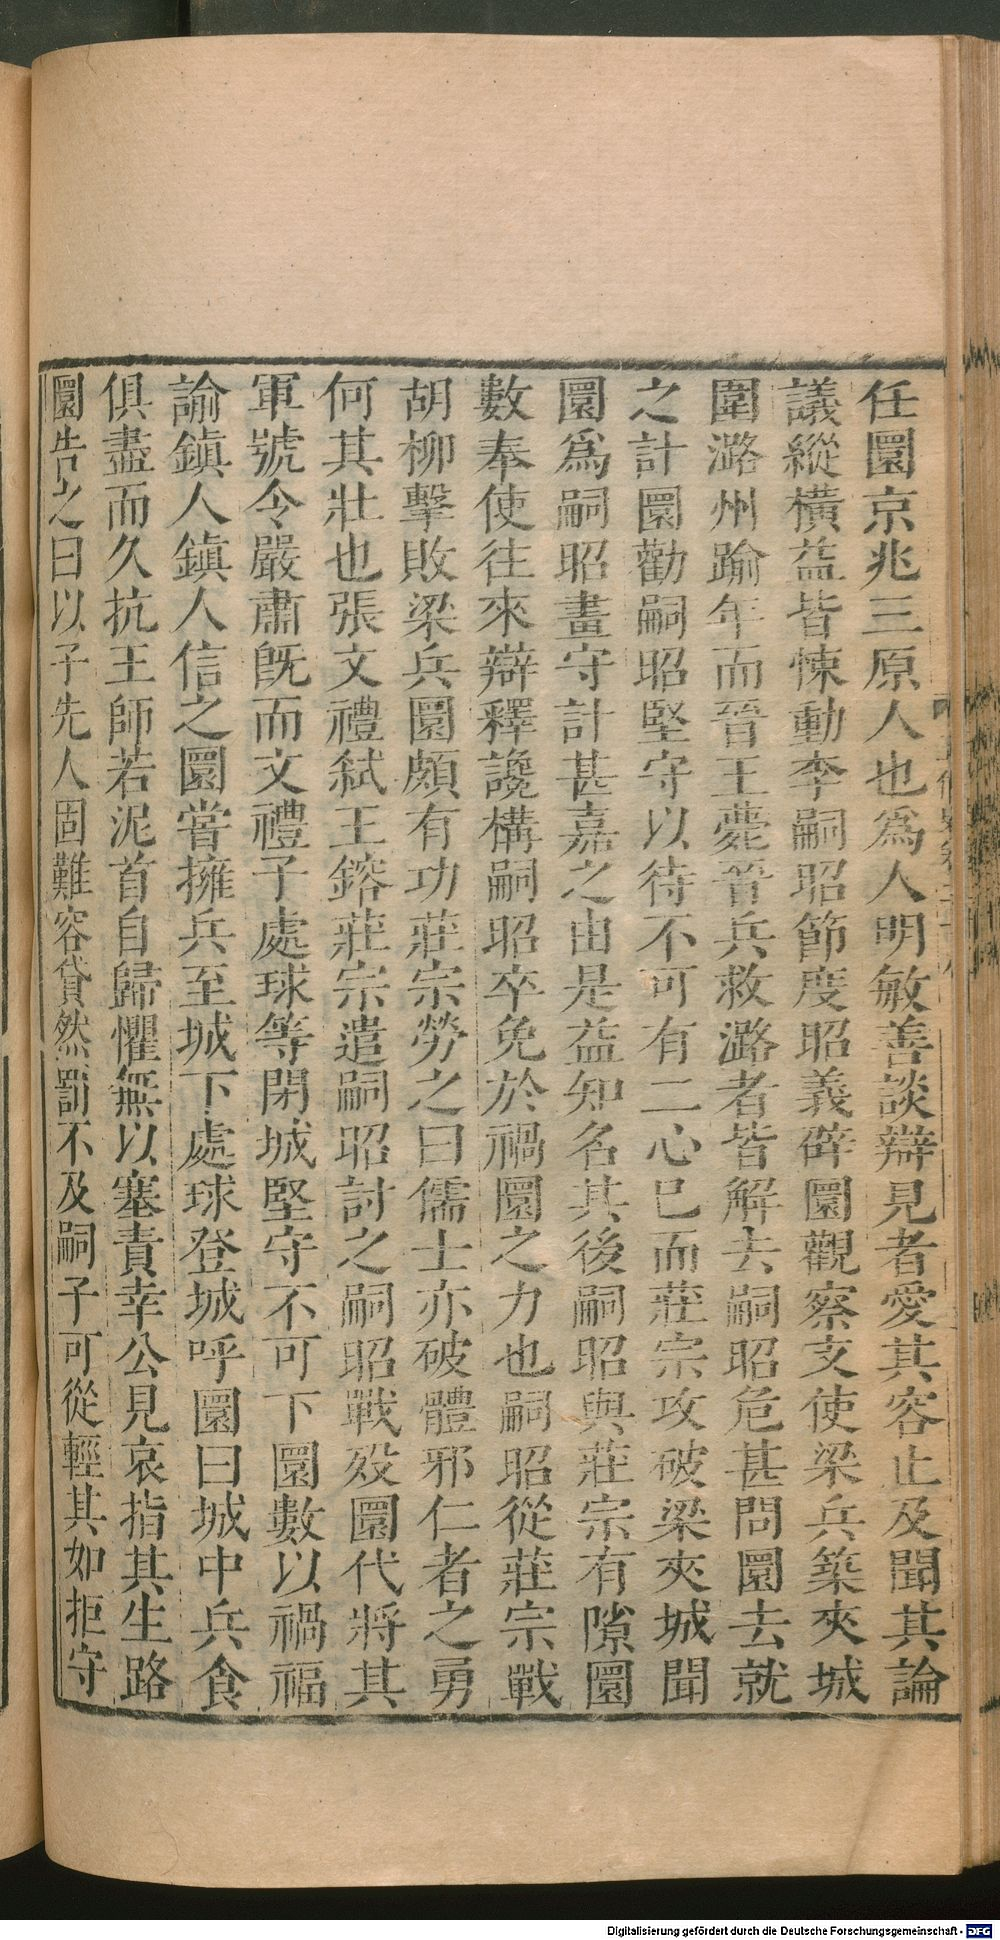 任圜京兆三原人也爲人明敏善談辯見者愛其容止及聞其論
議縱橫益皆悚動李嗣昭節度昭義辟圜觀察支使梁兵築夾城
圍潞州踰年而晉王薨晉兵救潞者皆解去嗣昭危甚問圜去就
之計圜勸嗣昭堅守以待不可有二心已而莊宗攻破梁夾城聞
圜爲嗣昭畫守計甚嘉之由是益知名其後嗣昭與莊宗有隙圜
數奉使往來辯釋讒構嗣昭卒免於禍圜之力也嗣昭從莊宗戰
胡柳擊敗梁兵圜頗有功莊宗勞之曰儒士亦破體邪仁者之勇
何其壯也張文禮弒王鎔莊宗遣嗣昭討之嗣昭戰歿圜代將其
軍號令嚴肅旣而文禮子處球等閉城堅守不可下圜數以禍福
諭鎮人鎮人信之圜嘗擁兵至城下處球登城呼圜曰城中兵食
俱盡而久抗王師若泥首自歸懼無以塞責幸公見哀指其生路
圜告之曰以子先人固難容貸然罰不及嗣子可從輕其如拒守
Digitalisierung gefördert durch die Deutsche Forschungsgemeinschaft - DFG